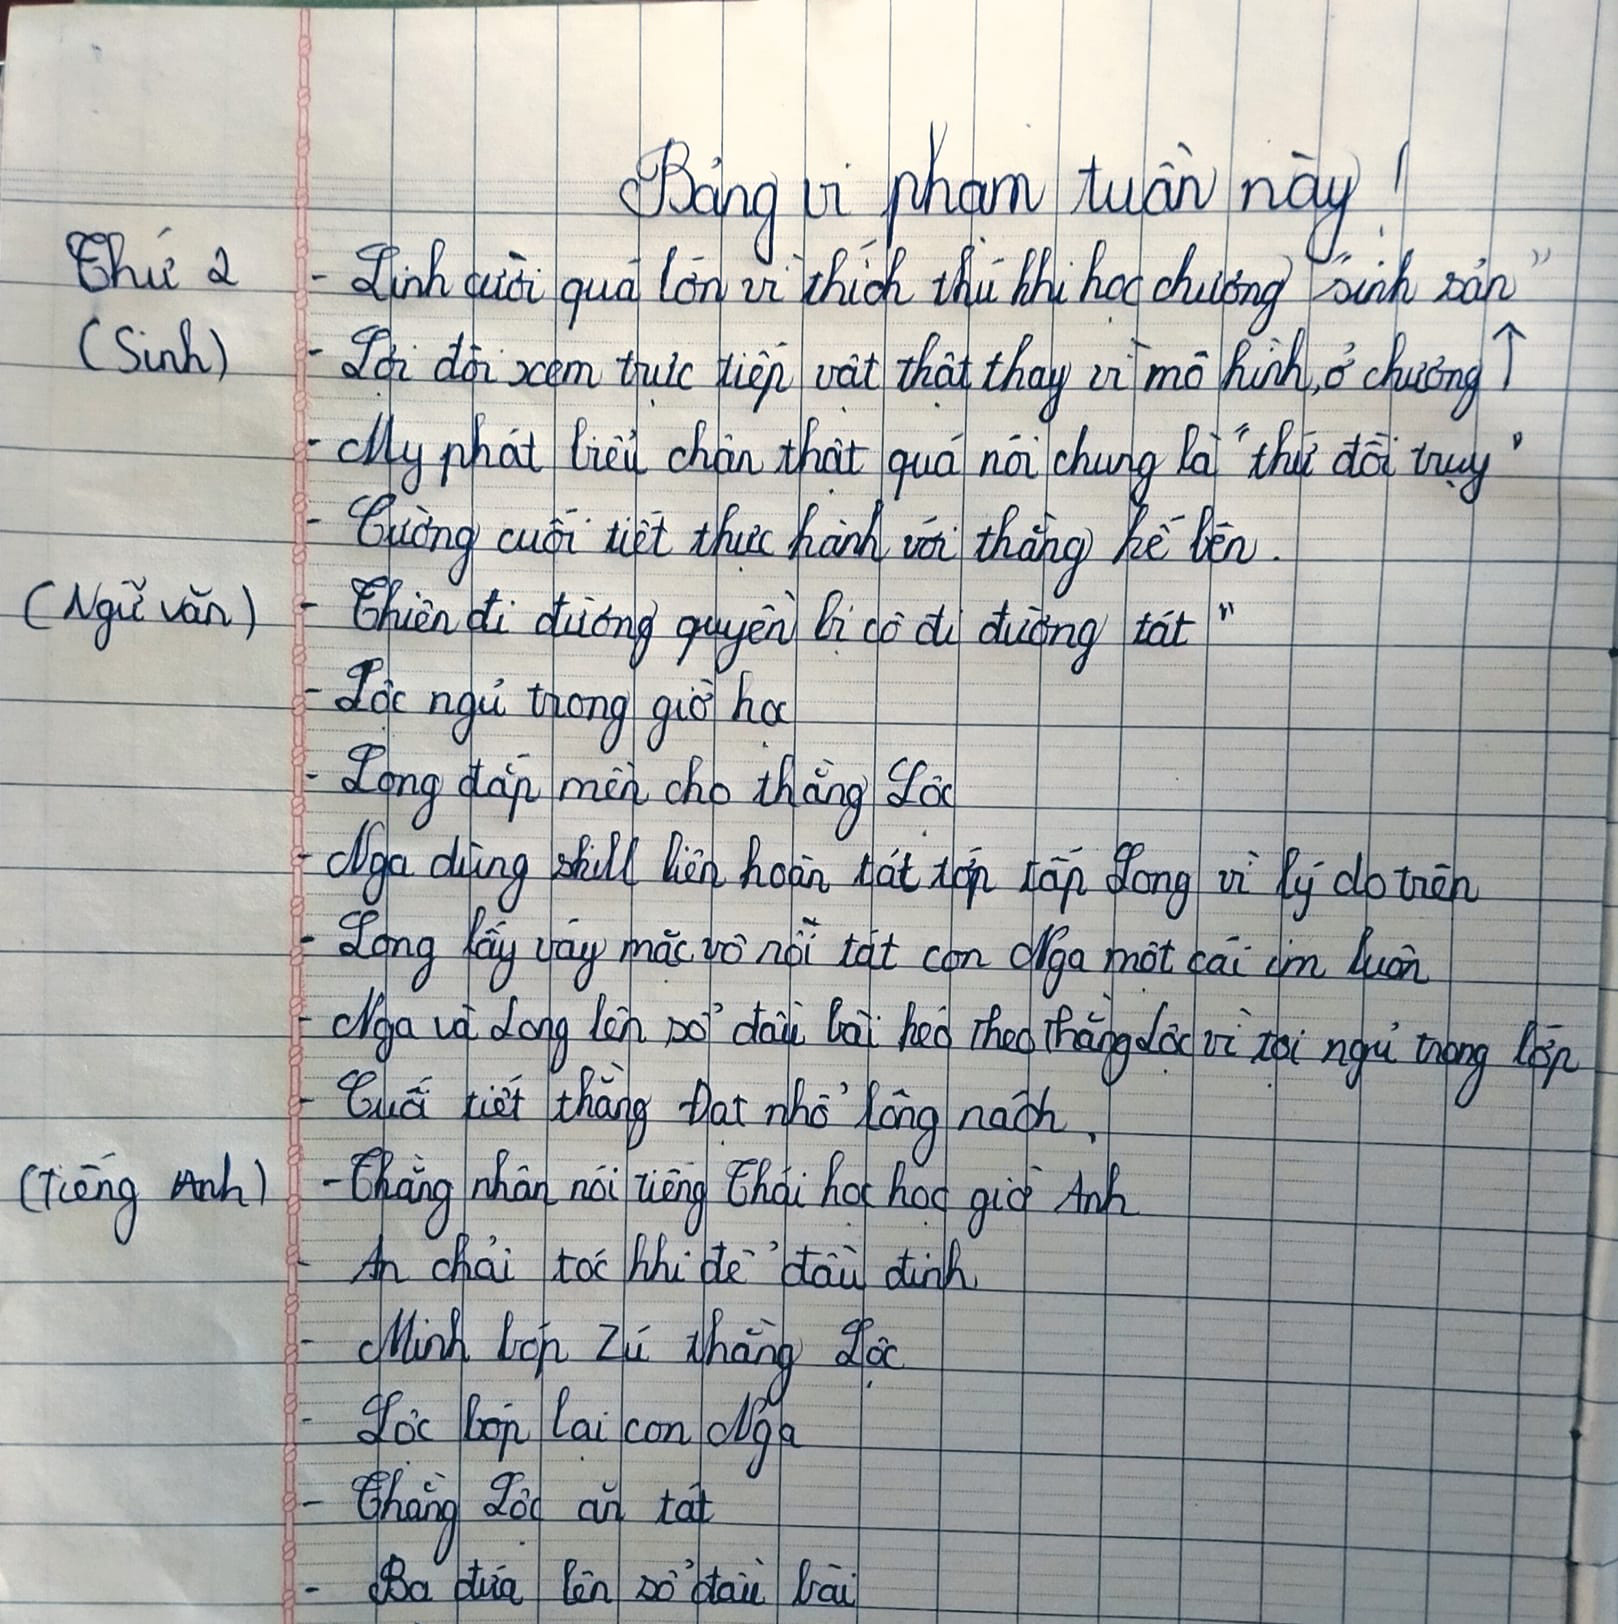 Bảng vi phạm tuần này!
Thứ 2 - Linh cười quá lớn vì thích thú khi học chương "sinh sản"
(Sinh) - Lợi đòi xem trực tiếp vật thật thay vì mô hình, ở chương ↑
- My phát biểu chân thật quá nói chung là "thứ đồi trụy"
- Cường cuối tiết thực hành với thằng kế bên.
(Ngữ văn) - Thiên đi đường quyền bị cô đi đường tát"
- Lộc ngủ trong giờ học
- Long đắp mền cho thằng Lộc
- Nga dùng skill liên hoàn tát tớp tấp Long vì lý do trên
- Long lấy váy mặc vô nỗi tát con Nga một cái im luôn
- Nga và Long lên sổ đầu bài kéo theo thằng Lộc vì tội ngủ trong lớp
- Cuối tiết thằng Đạt nhổ lông nách.
(Tiếng Anh) - Thằng nhân nói tiếng Thái học học giờ Anh
- An chải tóc khi để đầu đinh
- Minh bóp Zú thằng Lộc
- Lộc bóp lại con Nga
- Thằng Lộc ăn tát
- Ba đứa lên sổ đầu bài